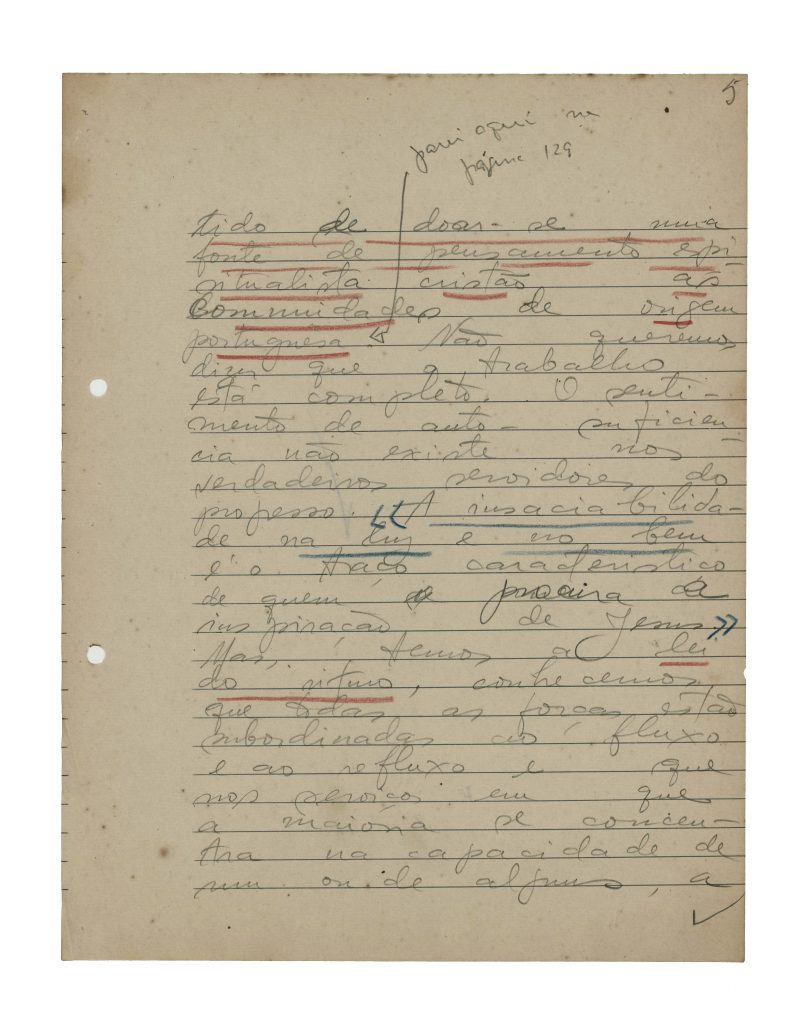 5
parei aqui na
página 129
tido de doar-se uma
fonte de pensamento espi-
ritualista cristão às
Comunidades de origem
portuguêsa. Não queremos
dizer que o trabalho
está completo. O senti-
mento de auto-suficiên-
cia não existe nos
verdadeiros servidores do
progresso. «A insaciabilida-
de na luz e no bem
é o traço característico
de quem se procura a
inspiração de Jesus»
Mas, temos a lei
do ritmo, conhecemos
que todas as forças estão
subordinadas ao fluxo
e ao refluxo e que
nos serviços em que
a maioria se concen-
tra na capacidade de
um ou de alguns, a